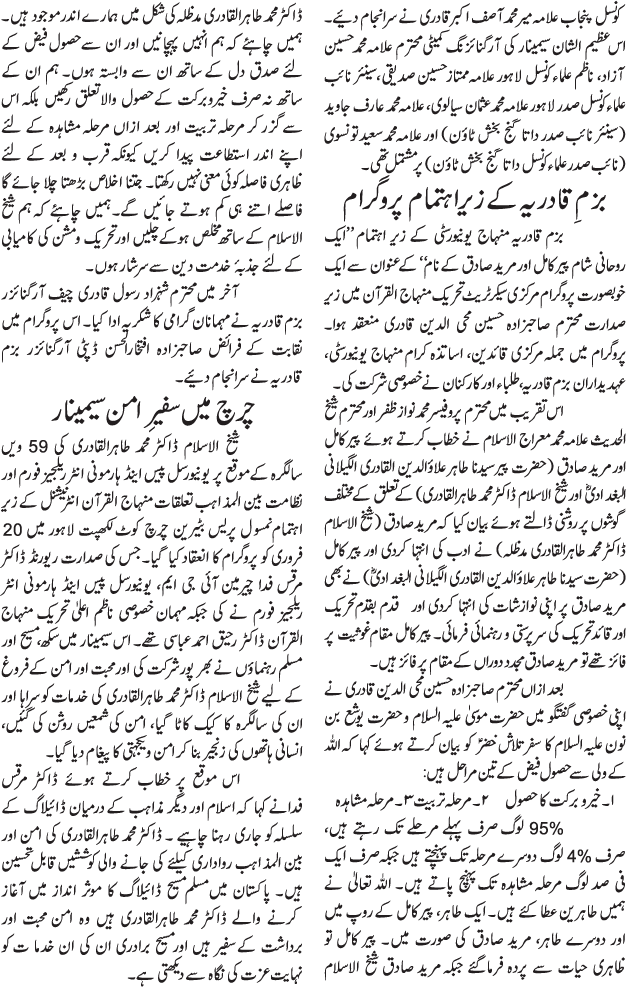 کونسل پنجاب علامہ میر محمد آصف اکبر قادری نے سرانجام دیئے۔
اس عظیم الشان سیمینار کی آرگنائزنگ کمیٹی محترم علامہ محمد حسین
آزاد، ناظم علماء کونسل لاہور علامہ ممتاز حسین صدیقی، سینئر نائب
صدر علماء کونسل لاہور علامہ محمد عثمان سیالوی، علامہ محمد عارف جاوید
(سینئر نائب صدر داتا گنج بخش ٹاؤن) اور علامہ محمد سعید تونسوی
(نائب صدر علماء کونسل داتا گنج بخش ٹاؤن) پر مشتمل تھی۔
بزمِ قادریہ کے زیر اہتمام پروگرام
بزم قادریہ منہاج یونیورسٹی کے زیر اہتمام ’’ایک
روحانی شام پیر کامل اور مرید صادق کے نام‘‘ کے عنوان سے ایک
خوبصورت پروگرام مرکزی سیکرٹریٹ تحریک منہاج القرآن میں زیر
صدارت محترم صاحبزادہ حسین محی الدین قادری منعقد ہوا۔
پروگرام میں جملہ مرکزی قائدین، اساتذہ کرام منہاج یونیورسٹی،
عہدیداران بزم قادریہ، طلباء اور کارکنان نے خصوصی شرکت کی۔
اس تقریب میں محترم پروفیسر محمد نواز ظفر اور محترم شیخ
الحدیث علامہ محمد معراج الاسلام نے خطاب کرتے ہوئے پیر کامل
اور مرید صادق (حضرت پیر سیدنا طاہر علاؤالدین القادری الگیلانی
البغدادیؒ اور شیخ الاسلام ڈاکٹر محمد طاہرالقادری) کے تعلق کے مختلف
گوشوں پر روشنی ڈالتے ہوئے بیان کیا کہ مرید صادق (شیخ الاسلام
ڈاکٹر محمد طاہرالقادری مدظلہ) نے ادب کی انتہا کردی اور پیر کامل
(حضرت سیدنا طاہر علاؤالدین القادری الگیلانی البغدادیؒ) نے بھی
مرید صادق پر اپنی نوازشات کی انتہا کردی اور قدم بقدم تحریک
اور قائد تحریک کی سرپرستی و رہنمائی فرمائی۔ پیر کامل مقام غوثیت پر
فائز تھے تو مرید صادق مجدد دوراں کے مقام پر فائز ہیں۔
بعد ازاں محترم صاحبزادہ حسین محی الدین قادری نے
اپنی خصوصی گفتگو میں حضرت موسیٰ علیہ السلام و حضرت یوشع بن
نون علیہ السلام کا سفر تلاش خضرؑ کو بیان کرتے ہوئے کہا کہ اللہ
کے ولی سے حصول فیض کے تین مراحل ہیں:
۱۔ خیر و برکت کا حصول ۲۔ مرحلہ تربیت ۳۔ مرحلہ مشاہدہ
95% لوگ صرف پہلے مرحلے تک رہتے ہیں،
صرف 4% لوگ دوسرے مرحلہ تک پہنچتے ہیں جبکہ صرف ایک
فی صد لوگ مرحلہ مشاہدہ تک پہنچ پاتے ہیں۔ اللہ تعالیٰ نے
ہمیں طاہرین عطا کئے ہیں۔ ایک طاہر، پیر کامل کے روپ میں
اور دوسرے طاہر، مرید صادق کی صورت میں۔ پیر کامل تو
ظاہری حیات سے پردہ فرما گئے جبکہ مرید صادق شیخ الاسلام
ڈاکٹر محمد طاہرالقادری مدظلہ کی شکل میں ہمارے اندر موجود ہیں۔
ہمیں چاہئے کہ ہم انہیں پہچانیں اور ان سے حصول فیض کے
لئے صدق دل کے ساتھ ان سے وابستہ ہوں۔ ہم ان کے
ساتھ نہ صرف خیر و برکت کے حصول والا تعلق رکھیں بلکہ اس
سے گزر کر مرحلہ تربیت اور بعد ازاں مرحلہ مشاہدہ کے لئے
اپنے اندر استطاعت پیدا کریں کیونکہ قرب و بعد کے لئے
ظاہری فاصلہ کوئی معنی نہیں رکھتا۔ جتنا اخلاص بڑھتا چلا جائے گا
فاصلے اتنے ہی کم ہوتے جائیں گے۔ ہمیں چاہئے کہ ہم شیخ
الاسلام کے ساتھ مخلص ہوکے چلیں اور تحریک و مشن کی کامیابی
کے لئے جذبۂ خدمت دین سے سرشار ہوں۔
آخر میں محترم شہزاد رسول قادری چیف آرگنائزر
بزم قادریہ نے مہمانان گرامی کا شکریہ ادا کیا۔ اس پروگرام میں
نقابت کے فرائض صاحبزادہ افتخار الحسن ڈپٹی آرگنائزر بزم
قادریہ نے سرانجام دیئے۔
چرچ میں سفیرِ امن سیمینار
شیخ الاسلام ڈاکٹر محمد طاہرالقادری کی 59 ویں
سالگرہ کے موقع پر یونیورسل پیس اینڈ ہارمونی انٹر ریلیجیز فورم اور
نظامت بین المذاہب تعلقات منہاج القرآن انٹرنیشنل کے زیر
اہتمام نمسول پریس بیٹیرین چرچ کوٹ لکھپت لاہور میں 20
فروری کو پروگرام کا انعقاد کیا گیا۔ جس کی صدارت ریورنڈ ڈاکٹر
مرقس فدا چیرمین آئی جی ایم، یونیورسل پیس اینڈ ہارمونی انٹر
ریلیجیز فورم نے کی جبکہ مہمان خصوصی ناظم اعلیٰ تحریک منہاج
القرآن ڈاکٹر رحیق احمد عباسی تھے۔ اس سیمینار میں سکھ، مسیح اور
مسلم رہنماؤں نے بھرپور شرکت کی اور محبت اور امن کے فروغ
کے لیے شیخ الاسلام ڈاکٹر محمد طاہرالقادری کی خدمات کو سراہا اور
ان کی سالگرہ کا کیک کاٹا گیا، امن کی شمعیں روشن کی گئیں،
انسانی ہاتھوں کی زنجیر بنا کر امن و یکجہتی کا پیغام دیا گیا۔
اس موقع پر خطاب کرتے ہوئے ڈاکٹر مرقس
فدا نے کہا کہ اسلام اور دیگر مذاہب کے درمیان ڈائیلاگ کے
سلسلہ کو جاری رہنا چاہیے۔ ڈاکٹر محمد طاہرالقادری کی امن اور
بین المذاہب رواداری کیلئے کی جانے والی کوششیں قابل تحسین
ہیں۔ پاکستان میں مسلم مسیح ڈائیلاگ کا موثر انداز میں آغاز
کرنے والے ڈاکٹر محمد طاہرالقادری ہیں وہ امن محبت اور
برداشت کے سفیر ہیں اور مسیح برادری ان کی ان خدمات کو
نہایت عزت کی نگاہ سے دیکھتی ہے۔